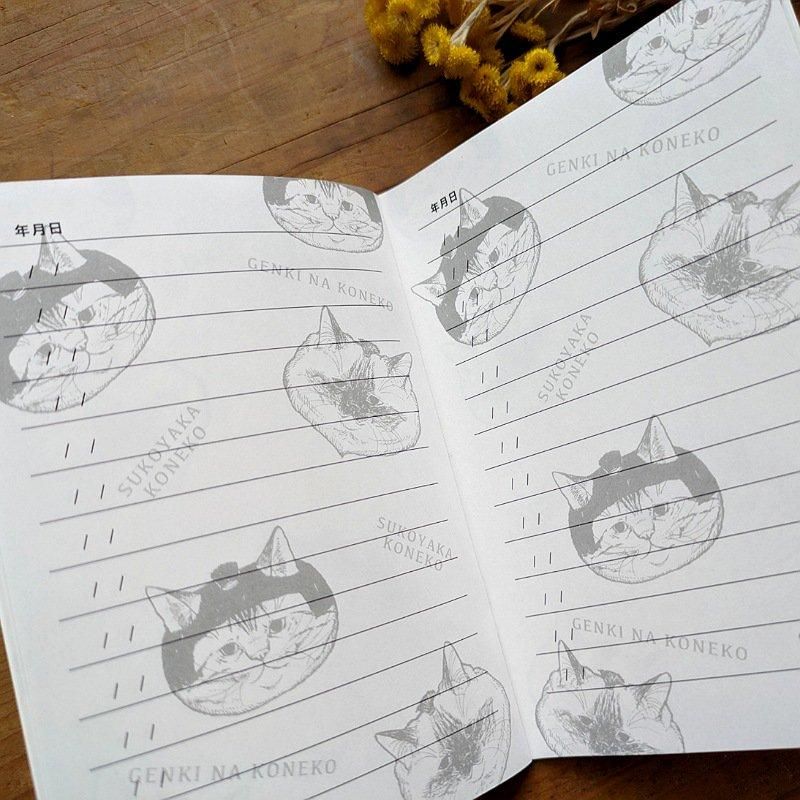 年月日
GENKI NA KONEKO
SUKOYAKA
KONEKO
SUKOYAKA
KONEKO
GENKI NA KONEKO
年月日
GENKI NA KONEKO
SUKOYAKA
KONEKO
GENKI NA KONEKO